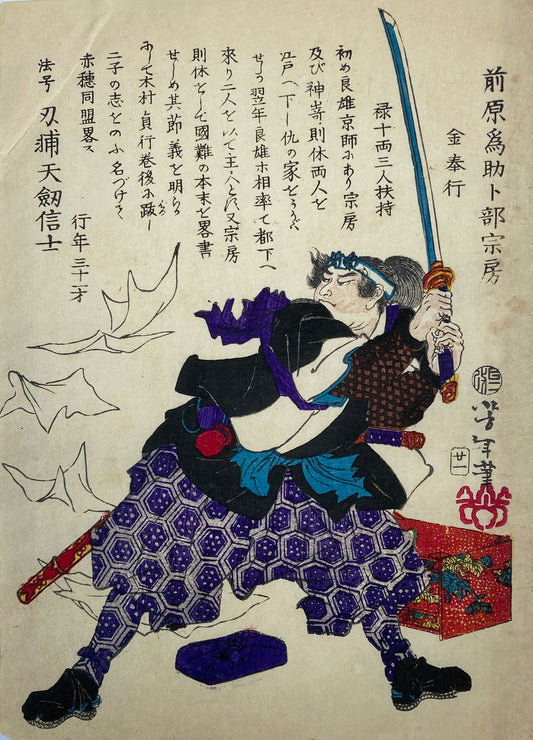 前原為助卜部宗房
金奉行
禄十両三人扶持
初め良雄京師にあり宗房
及び神嵜則休両人を
江戸へ下し仇の家をうかゞハ
せしむ翌年良雄ホ相率て都下へ
來り二人を以て主人とに又宗房
則休として國難の本末を畧書
せしめ其節義を明らかに
して木村貞行巻後に跋し
二子の志をのふ名づけて
赤穂同盟畧ス
行年三十一才
法号 刃補天劔信士
芳年筆
廿一